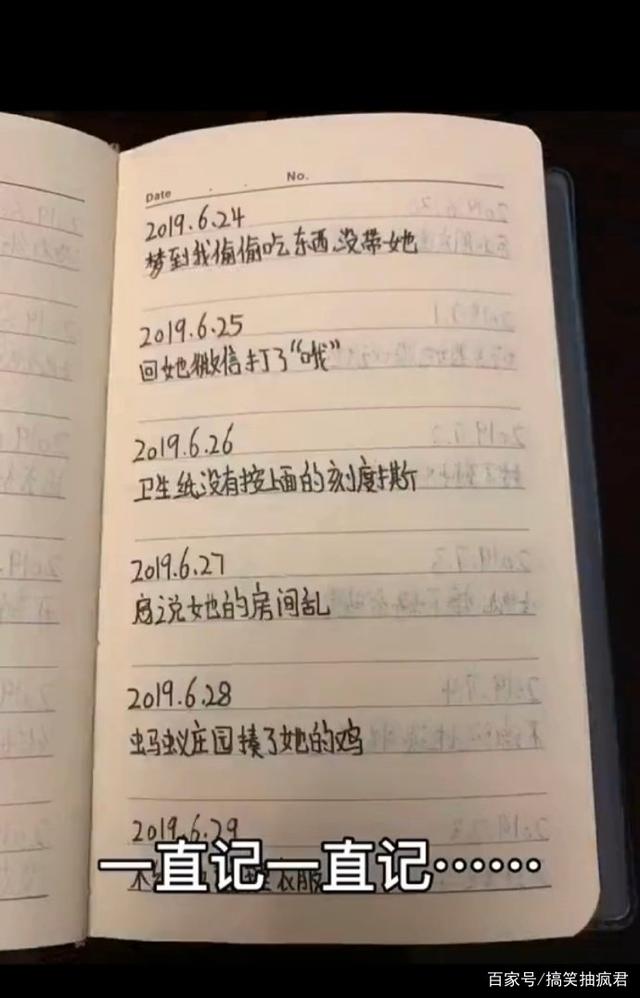 Date
No.
2019.6.24
梦到我偷偷吃东西没带她
2019.6.25
回她微信打了“哦”
2019.6.26
卫生纸没有按上面的刻度撕
2019.6.27
说她的房间乱
2019.6.28
蚂蚁庄园揍了她的鸡
2019.6.29
衣服
一直记一直记……
百家号/搞笑抽疯君